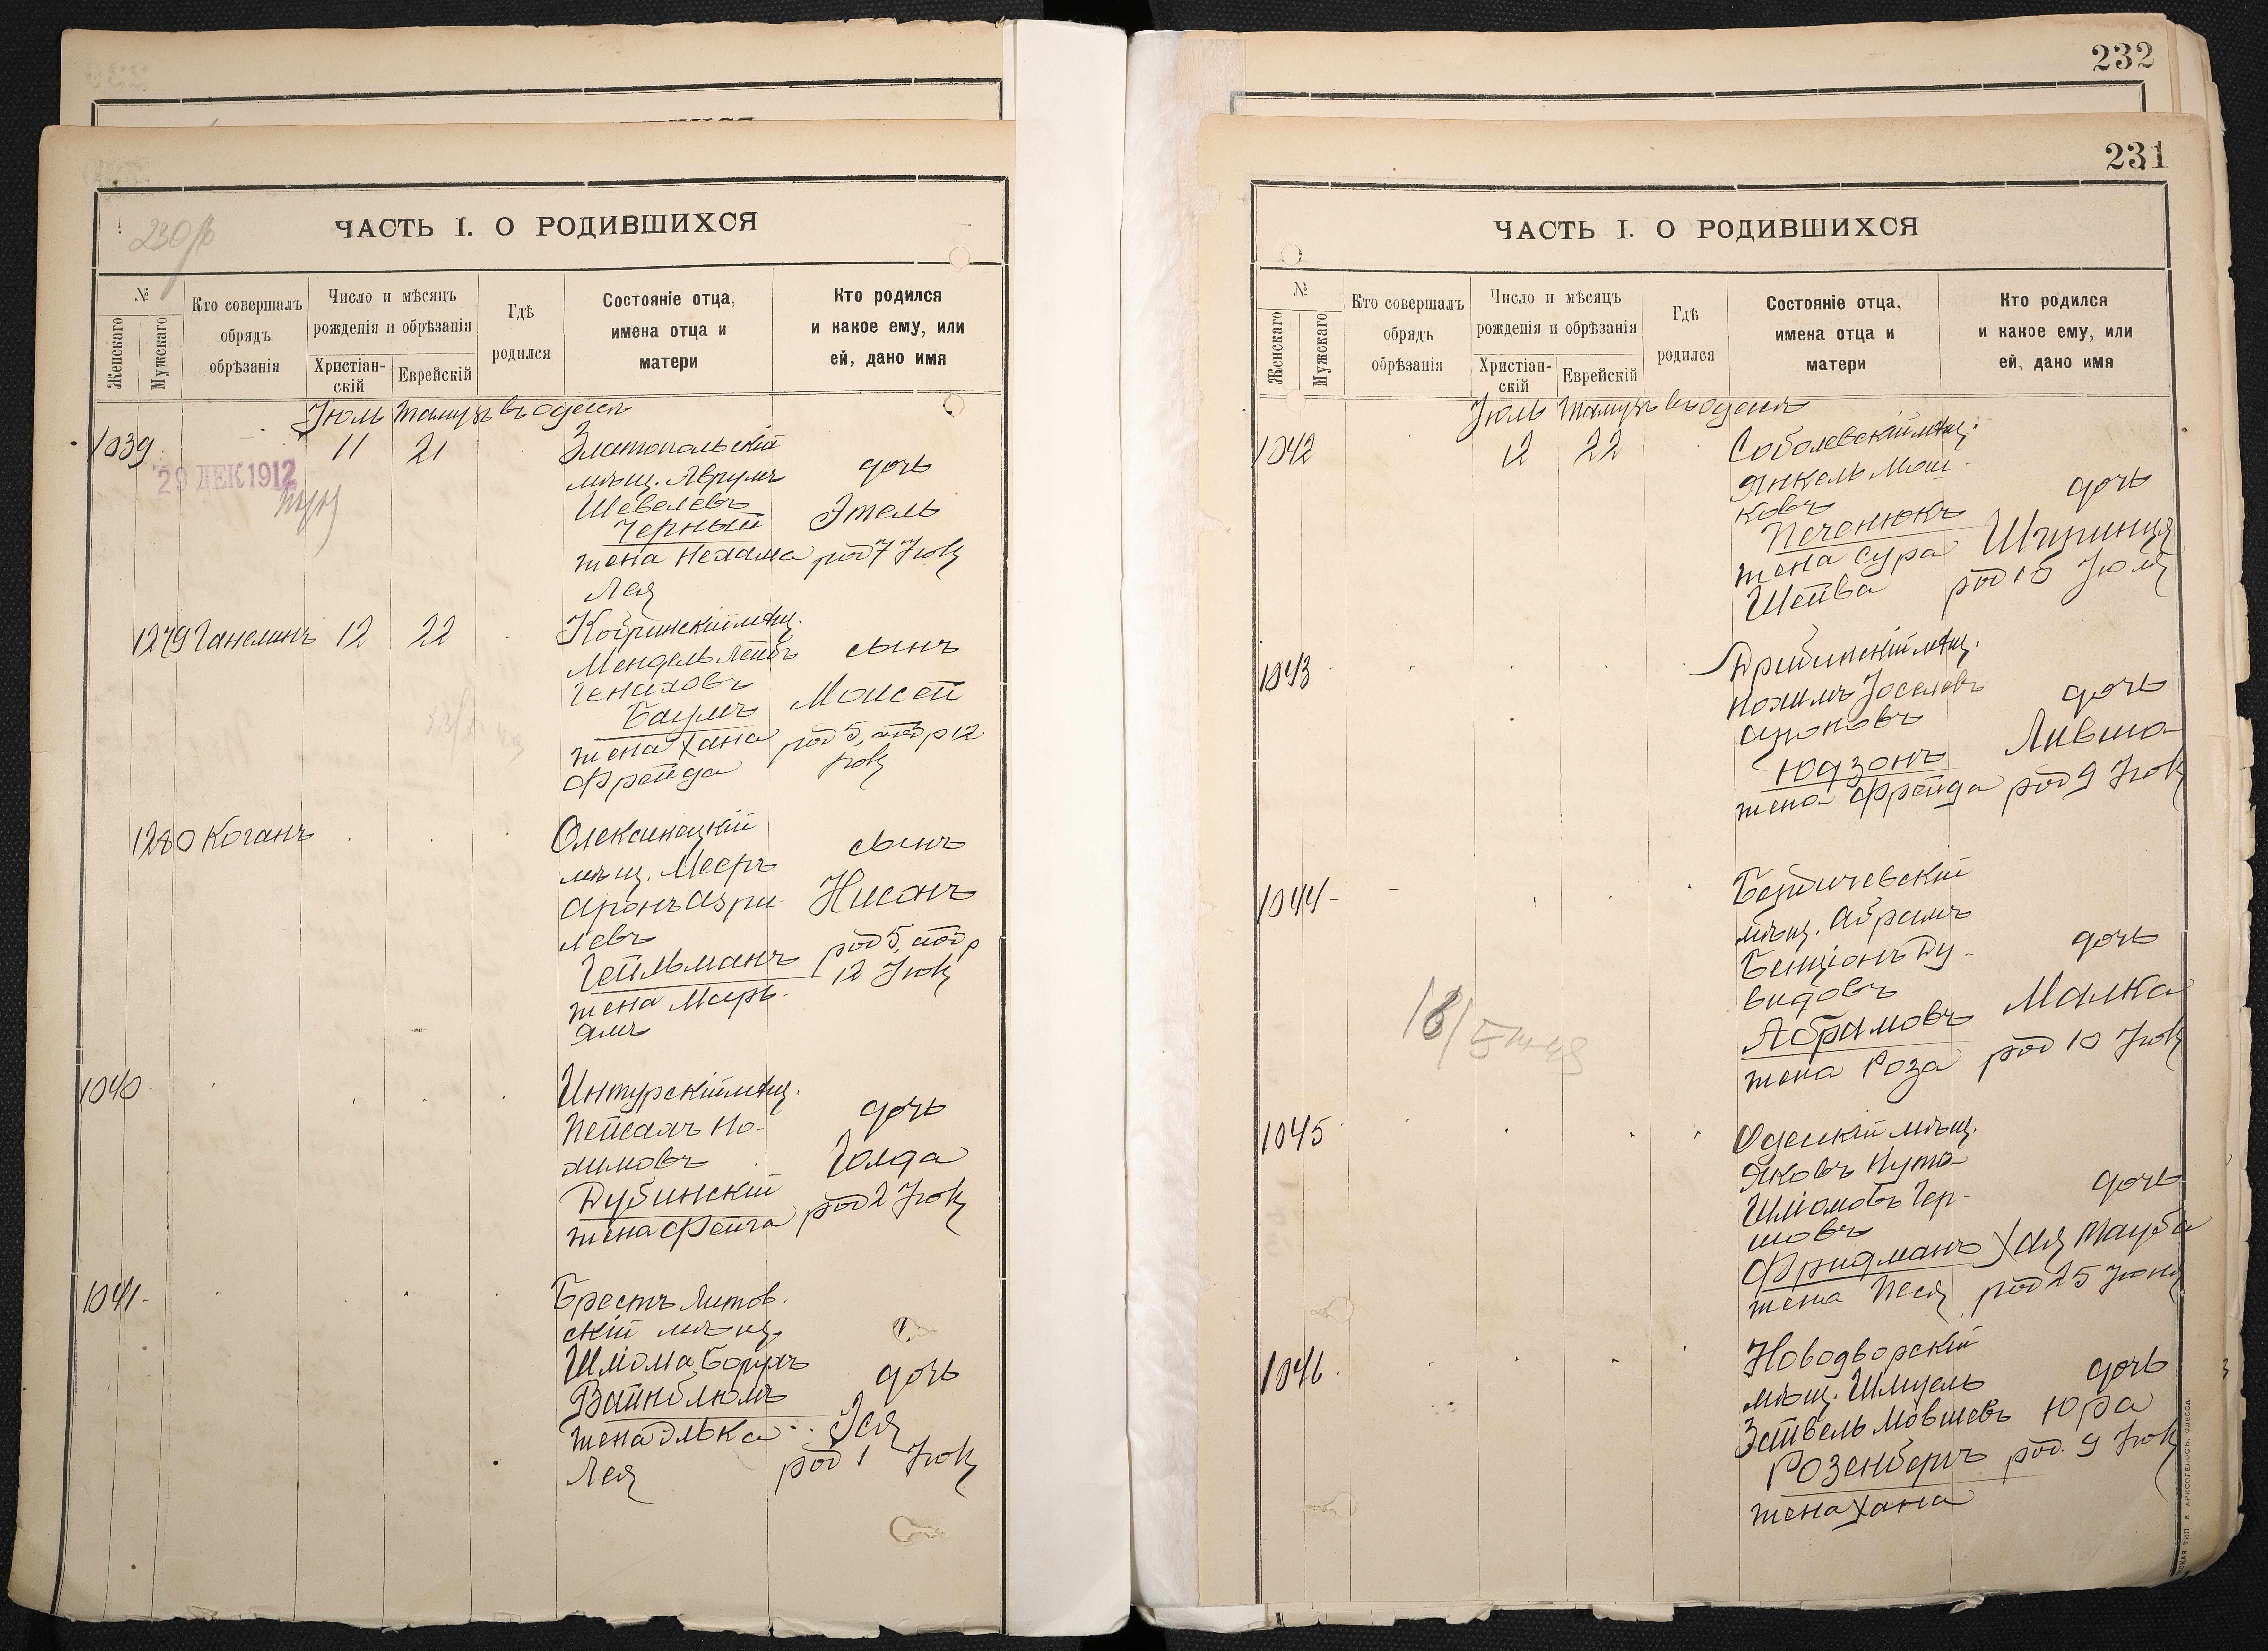 232
231
230об
ЧАСТЬ I. О РОДИВШИХСЯ
№
Женскаго
Мужскаго
Кто совершалъ
обрядъ
обрѣзанія
Число и мѣсяцъ
рожденія и обрѣзанія
Христіан-
скій
Еврейскій
Гдѣ
родился
Состояніе отца,
имена отца и
матери
Кто родился
и какое ему, или
ей, дано имя
Іюль Тамузъ въ Одессѣ
1039
11 21
29 ДЕК 1912
Златопольскій
мѣщ. Аврумъ
Шевелевъ
Черный
жена Нехама
Лея
дочь
Этель
род 7 Іюля
1279 Ганелинъ 12 22
Кобринскій мѣщ.
Мендель Лейбъ
Генаховъ
Баумъ
жена Хана
Фрейда
сынъ
Моисей
род 5, обр 12
Іюля
1280 Коганъ
Олексинецкій
мѣщ. Мееръ
Аронъ Азри-
левъ
Гейльманъ
жена Марь-
ямъ
сынъ
Нисонъ
род 5, обр
12 Іюля
1040
Интурскій мѣщ.
Пейсахъ Но-
химовъ
Дубинскій
жена Фейга
дочь
Голда
род 2 Іюля
1041
Брестъ Литов-
скій мѣщ.
Шліома Борухъ
Вайнблюмъ
жена Элька
Лея
дочь
Эся
род 1 Іюля
ЧАСТЬ I. О РОДИВШИХСЯ
№
Женскаго
Мужскаго
Кто совершалъ
обрядъ
обрѣзанія
Число и мѣсяцъ
рожденія и обрѣзанія
Христіан-
скій
Еврейскій
Гдѣ
родился
Состояніе отца,
имена отца и
матери
Кто родился
и какое ему, или
ей, дано имя
Іюль Тамузъ въ Одессѣ
1042
12 22
Соболевскій мѣщ.
Янкель Мош-
ковъ
Печенюкъ
жена Сура
Шейва
дочь
Шпринця
род 10 Іюля
1043
Дрибинскій мѣщ.
Нохимъ Іоселевъ
Ароновъ
Юдзонъ
жена Фрейда
дочь
Ливша
род 9 Іюля
1044
Бердичевскій
мѣщ. Абрамъ
Бенціонъ Ду-
видовъ
Абрамовъ
жена Роза
дочь
Малка
род 10 Іюля
1045
Одесскій мѣщ.
Яковъ Нута
Шліомовъ Гер-
шовъ
Фридманъ
жена Песя
дочь
Хая Тауба
род 25 Іюня
1046
Новодворскій
мѣщ. Шмуель
Зейвель Мовшевъ
Розенбергъ
жена Хана
дочь
Юра
род. 9 Іюля